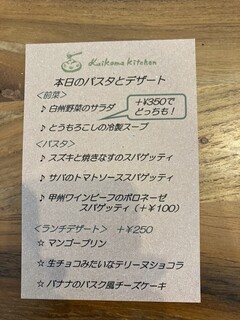 Kaikoma kitchen
本日のパスタとデザート
<前菜>
♪ 白州野菜のサラダ
+¥350で
どっちも!
♪ とうもろこしの冷製スープ
<パスタ>
♪ スズキと焼きなすのスパゲッティ
♪ サバのトマトソーススパゲッティ
♪ 甲州ワインビーフのボロネーゼ
スパゲッティ(+¥100)
<ランチデザート> +¥250
☆ マンゴープリン
☆ 生チョコみたいなテリーヌショコラ
☆ バナナのバスク風チーズケーキ